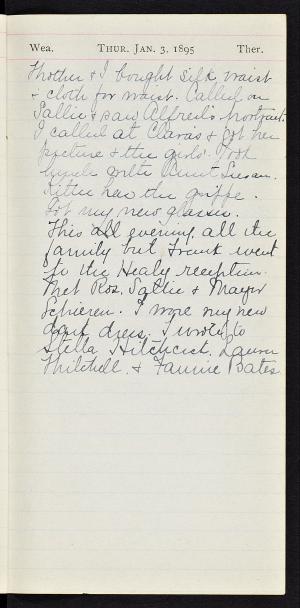 Wea. THUR. JAN. 3, 1895 Ther.
Mother & I bought silk waist
& cloth for waist. Called on
Sallie & saw Alfred's portrait.
I called at Clara's & got her
picture & the girls'. Took
lunch with Aunt Susan.
Kittie has the grippe.
Got my new glasses.
This all evening, all the
family but Frank went
to the Healy reception.
Met Ros, Sallie & Mayor
Schieren. I wore my new
dark dress. I wrote to
Stella Hitchcock, Laura
Mitchell, & Fannie Bates